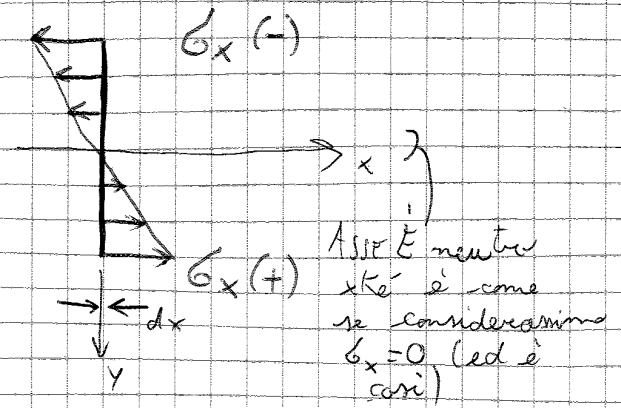 σx (-)
x
Asse È neutro
xké è come
se considerassimo
σx = 0 (ed è
così)
σx (+)
dx
y